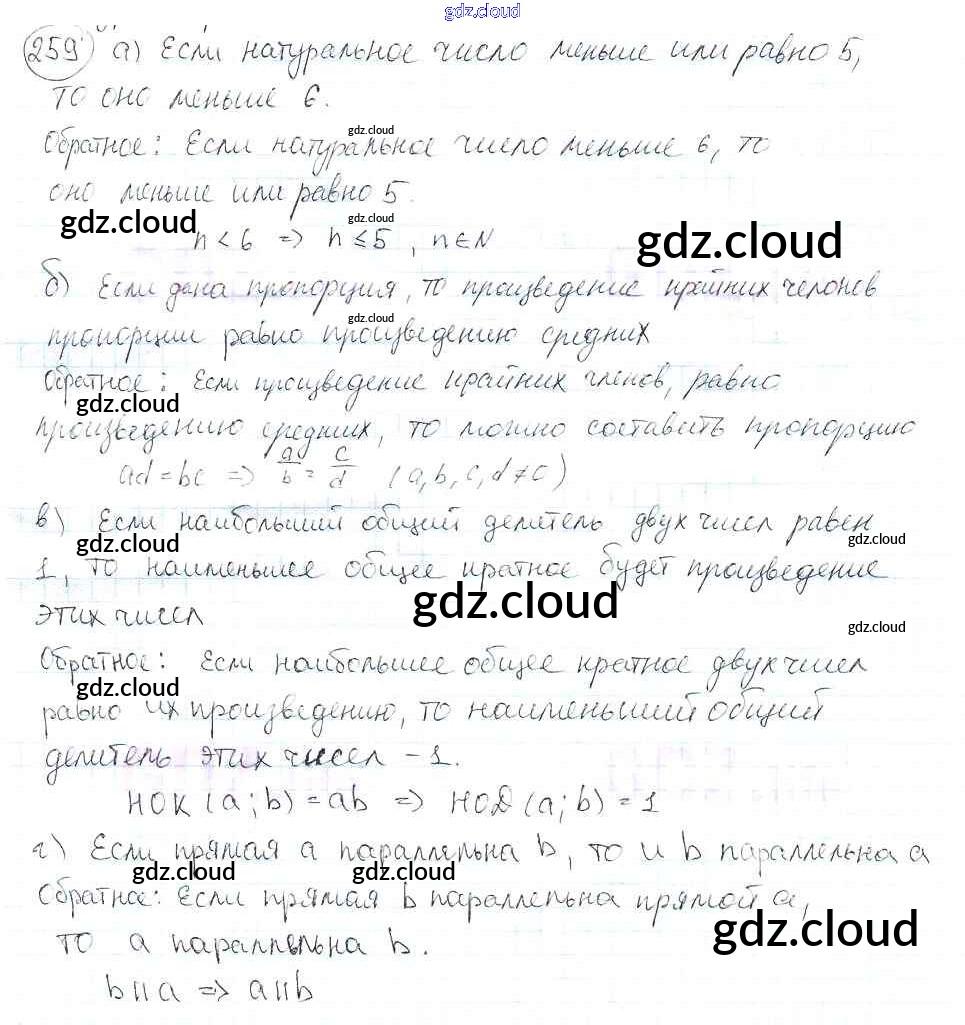 gdz.cloud
259 а) Если натуральное число меньше или равно 5,
то оно меньше 6.
gdz.cloud
Обратное: Если натуральное число меньше 6, то
оно меньше или равно 5.
gdz.cloud gdz.cloud gdz.cloud
n < 6 => n ≤ 5 , n ∈ N
б) Если дана пропорция, то произведение крайних челонов
gdz.cloud
пропорции равно произведению средних
Обратное: Если произведение крайних членов, равно
gdz.cloud
произведению средних, то можно составить пропорцию
ad = bc => a/b = c/d (a, b, c, d ≠ c)
в) Если наибольший общий делитель двух чисел равен
gdz.cloud gdz.cloud
1, то наименьшее общее кратное будет произведение
gdz.cloud
этих чисел
gdz.cloud
Обратное: Если наибольшее общее кратное двух чисел
gdz.cloud
равно их произведению, то наименьший общий
делитель этих чисел – 1.
НОК (a; b) = ab => НОД (a; b) = 1
г) Если прямая a параллельна b, то и b параллельна a
gdz.cloud gdz.cloud
Обратное: Если прямая b параллельна прямой a,
gdz.cloud
то a параллельна b.
b || a => a || b